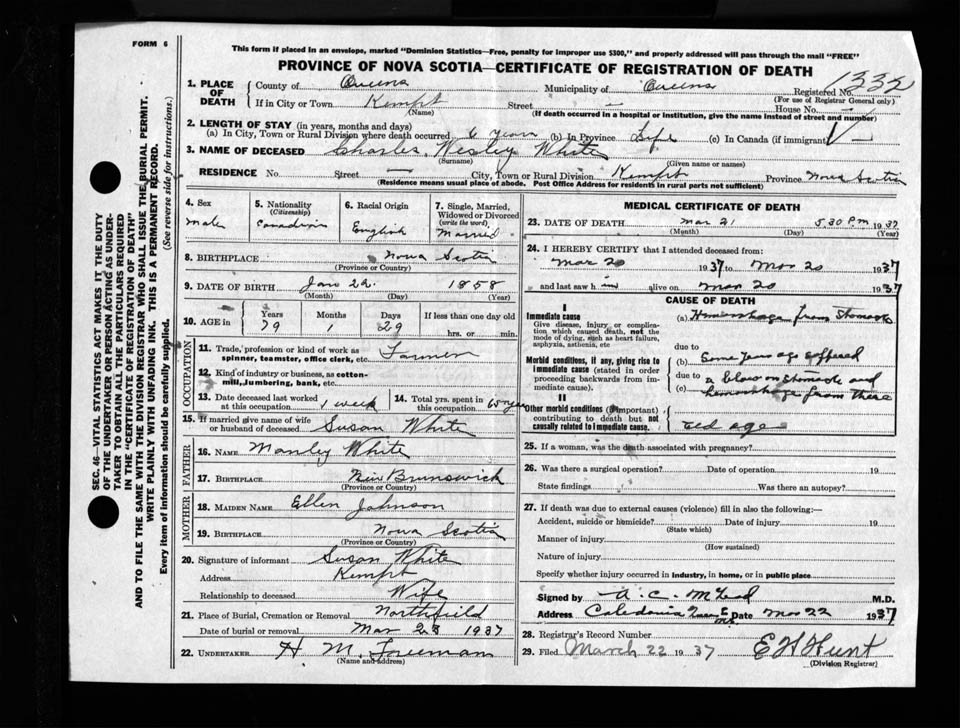 FORM 6
This form if placed in an envelope, marked "Dominion Statistics—Free, penalty for improper use $300," and properly addressed will pass through the mail "FREE"
PROVINCE OF NOVA SCOTIA—CERTIFICATE OF REGISTRATION OF DEATH
1332
1. PLACE OF DEATH { County of Queens Municipality of Queens Registered No.
(For use of Registrar General only)
If in City or Town Kempt Street — House No. —
(Name) (If death occurred in a hospital or institution, give the name instead of street and number)
2. LENGTH OF STAY (in years, months and days)
(a) In City, Town or Rural Division where death occurred 6 years (b) In Province Life (c) In Canada (if immigrant)
3. NAME OF DECEASED Charles Wesley White
(Surname) (Given name or names)
RESIDENCE No. Street — City, Town or Rural Division Kempt Province Nova Scotia
(Residence means usual place of abode. Post Office Address for residents in rural parts not sufficient)
SEC. 46—VITAL STATISTICS ACT MAKES IT THE DUTY
OF THE UNDERTAKER OR PERSON ACTING AS UNDER-
TAKER TO OBTAIN ALL THE PARTICULARS REQUIRED
IN THE "CERTIFICATE OF REGISTRATION OF DEATH"
AND TO FILE THE SAME WITH THE DIVISION REGISTRAR WHO SHALL ISSUE THE BURIAL PERMIT.
WRITE PLAINLY WITH UNFADING INK. THIS IS A PERMANENT RECORD.
Every item of information should be carefully supplied. (See reverse side for instructions.)
4. Sex 5. Nationality (Citizenship) 6. Racial Origin 7. Single, Married, Widowed or Divorced (write the word)
male Canadian English Married
8. BIRTHPLACE Nova Scotia
(Province or Country)
9. DATE OF BIRTH Jan 22 1858
(Month) (Day) (Year)
10. AGE in Years Months Days If less than one day old
79 1 29 hrs. or min.
OCCUPATION
11. Trade, profession or kind of work as spinner, teamster, office clerk, etc. Farmer
12. Kind of industry or business, as cotton-mill, lumbering, bank, etc.
13. Date deceased last worked at this occupation 1 week 14. Total yrs. spent in this occupation 65 years
15. If married give name of wife or husband of deceased Susan White
FATHER
16. NAME Manley White
17. BIRTHPLACE New Brunswick
(Province or Country)
MOTHER
18. MAIDEN NAME Ellen Johnson
19. BIRTHPLACE Nova Scotia
(Province or Country)
20. Signature of informant Susan White
Address Kempt
Relationship to deceased Wife
21. Place of Burial, Cremation or Removal Northfield
Date of burial or removal Mar 23 1937
22. UNDERTAKER H M. Freeman
(Name and address)
MEDICAL CERTIFICATE OF DEATH
23. DATE OF DEATH Mar 21 5.30 P.m. 1937
(Month) (Day) (Year)
24. I HEREBY CERTIFY that I attended deceased from:
Mar 20 1937 to Mar 20 1937
and last saw him alive on Mar 20 1937
CAUSE OF DEATH
I
Immediate cause
Give disease, injury or complication which caused death, not the mode of dying, such as heart failure, asphyxia, asthenia, etc
(a) Hemorrhage from Stomach
due to
Morbid conditions, if any, giving rise to immediate cause (stated in order proceeding backwards from immediate cause).
(b) Some years ago suffered
due to
(c) a blow on stomach and
hemorrhage from there
II
Other morbid conditions (if important) contributing to death but not causally related to immediate cause.
old age
25. If a woman, was the death associated with pregnancy?
26. Was there a surgical operation? Date of operation 19
State findings Was there an autopsy?
27. If death was due to external causes (violence) fill in also the following:—
Accident, suicide or homicide? Date of injury 19
(State which)
Manner of injury
(How sustained)
Nature of injury
Specify whether injury occurred in industry, in home, or in public place
Signed by A. C. M. M.D.
Address Caledonia Date Mar 22 1937
28. Registrar's Record Number
29. Filed March 22 1937 E H Hunt
(Division Registrar)